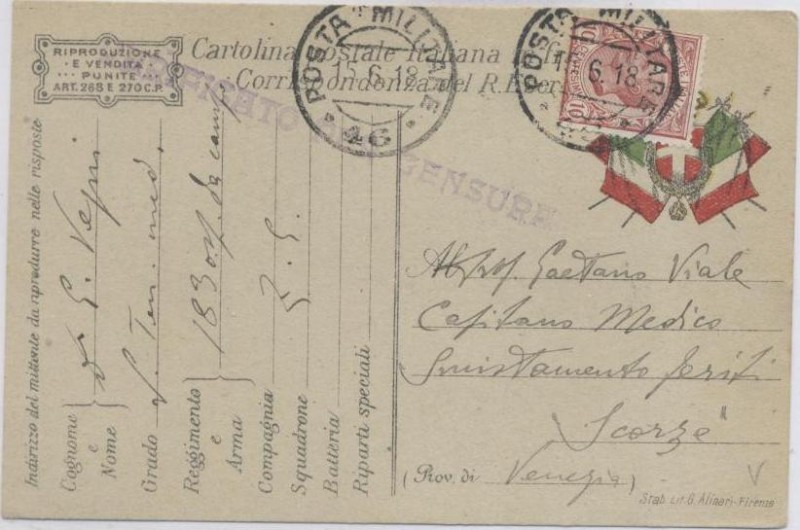 RIPRODUZIONE
E VENDITA
PUNITE
ART. 268 E 270 C.P.
Cartolina Postale Italiana
Corrispondenza del R. Eser
POSTA MILITARE
15.6.18
46
POSTA MILITARE
6.18
CENSURA
Indirizzo del mittente da riprodurre nelle risposte
Cognome e Nome
Grado S. Ten. med.
Reggimento e Arma 183 osp. da camp
Compagnia Z. G.
Squadrone
Batteria
Riparti speciali
Al prof. Gaetano Viale
Capitano Medico
Smistamento feriti
Scorzè
(Prov. di Venezia)
Stab. Lit. G. Alinari-Firenze